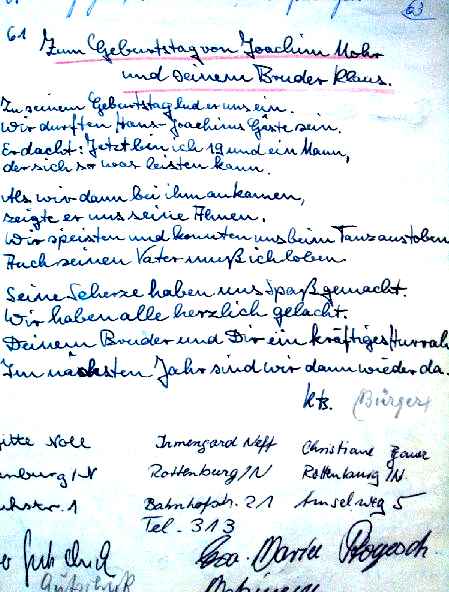 63
61
Zum Geburtstag von Joachim Mohr
und seinem Bruder Klaus.
Zu seinem Geburtstag lud er uns ein.
Wir durften Hans-Joachims Gäste sein.
Er dacht: Jetzt bin ich 19 und ein Mann,
der sich so was leisten kann.
Als wir dann bei ihm ankamen,
zeigte er uns seine Ahnen.
Wir speisten und konnten uns beim Tanz austoben
Auch seinen Vater muß ich loben.
Seine Scherze haben uns Spaß gemacht.
Wir haben alle herzlich gelacht.
Deinem Bruder und Dir ein kräftiges Hurrah
Im nächsten Jahr sind wir dann wieder da.
(Bürger)
Irmengard Neff
Christiane
Rottenburg/N
Rottenburg/N.
Bahnhofstr. 21
Amselweg 5
Tel. 313
Eva-Maria Rogosch